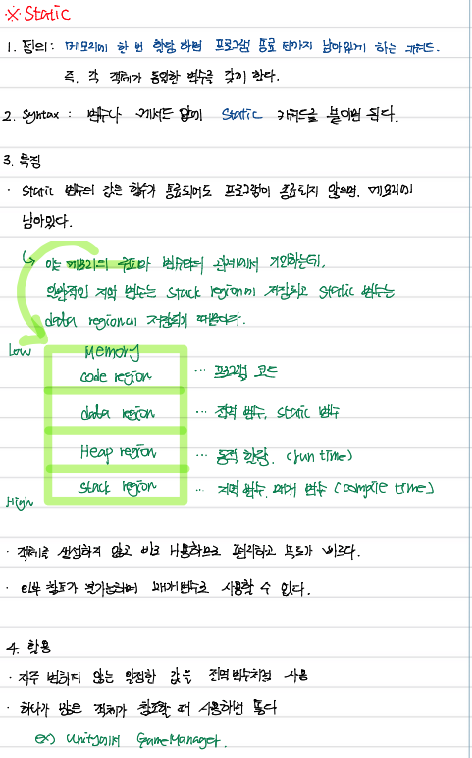 ※ Static
1. 정의 : 메모리에 한 번 할당하면 프로그램 종료 전까지 남아있게 하는 키워드.
즉, 각 객체가 동일한 변수를 갖게 한다.
2. Syntax : 변수나 메서드 앞에 Static 키워드를 붙이면 된다.
3. 특징
· Static 변수의 값은 함수가 종료되어도 프로그램이 종료되지 않으면, 메모리에
남아있다.
↳ 이는 메모리의 구조와 변수와의 관계에서 기인하는데,
일반적인 지역 변수는 stack region에 저장되고 Static 변수는
data region에 저장되기 때문이다.
Low Memory
code region ··· 프로그램 코드
data region ··· 전역 변수, Static 변수
Heap region ··· 동적 할당. (run time)
stack region ··· 지역 변수, 매개 변수 (compile time)
High
· 객체를 생성하지 않고 바로 사용하므로 편리하고 속도가 빠르다.
· 외부 참조가 불가능하며 매개변수로 사용할 수 있다.
4. 활용
· 자주 변하지 않는 일정한 값을 전역변수처럼 사용
· 하나가 많은 객체가 참조할 때 사용하면 좋다
ex) Unity에서 GameManager.